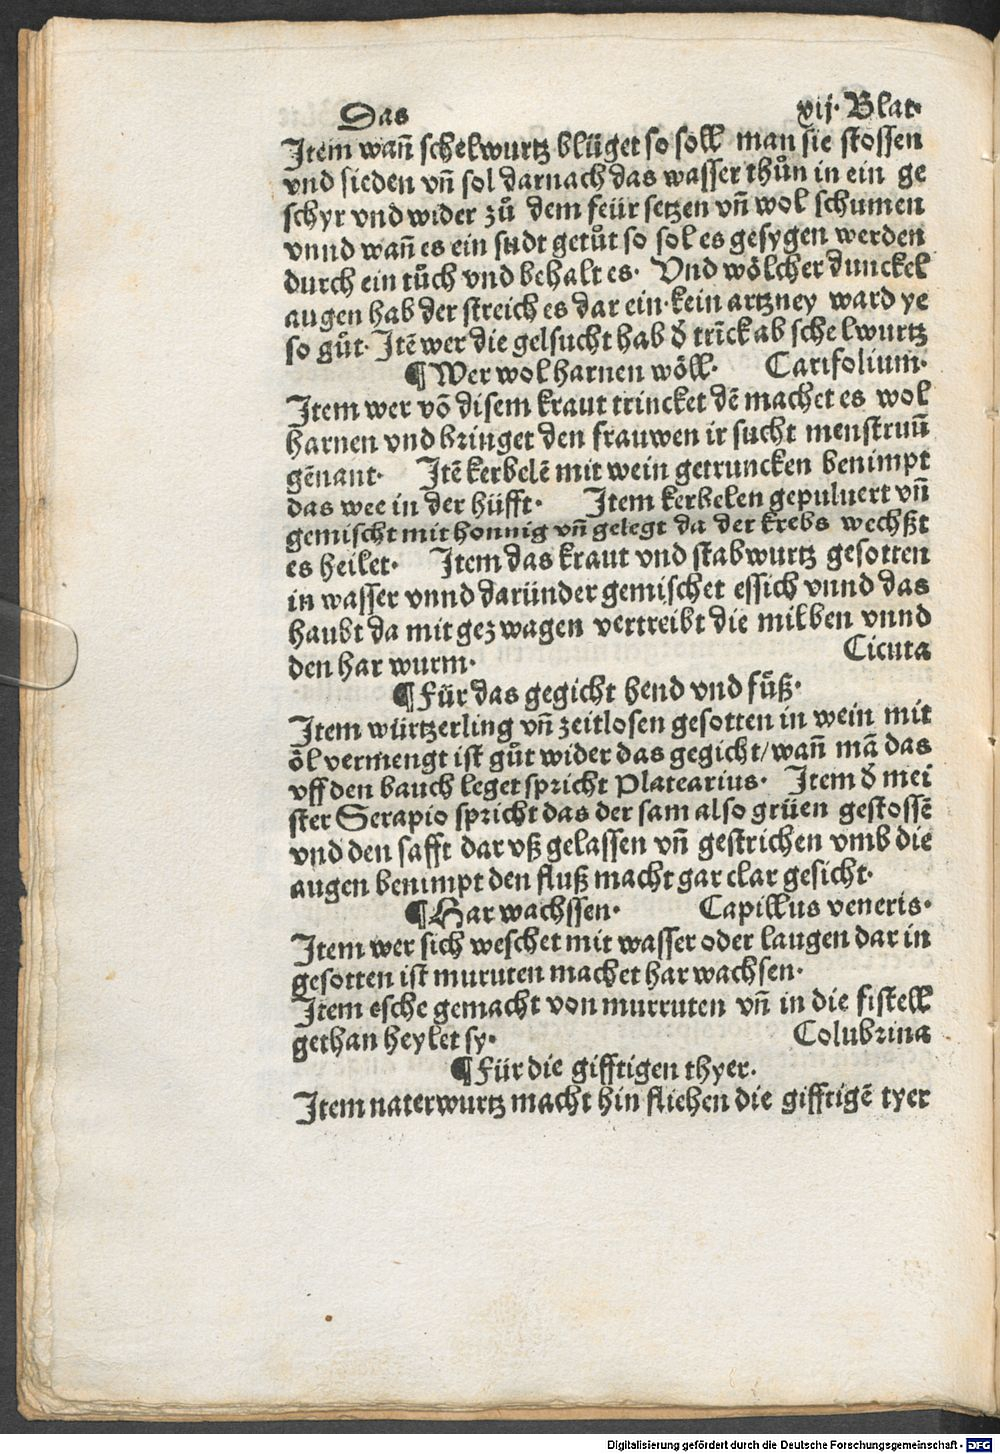 Das xij. Blat.
Item wañ schelwurtz blüget so soll man sie stossen
vnd sieden vñ sol darnach das wasser thůn in ein ge
schyr vnd wider zů dem feür setzen vñ wol schumen
vnnd wañ es ein sudt getůt so sol es gesygen werden
durch ein tůch vnd behalt es. Vnd wölcher dunckel
augen hab der streich es dar ein. kein artzney ward ye
so gůt. Itē wer die gelsucht hab đ trīck ab schelwurtz
¶ Wer wol harnen wöll. Carifolium.
Item wer vō disem kraut trincket dē machet es wol
harnen vnd bringet den frauwen ir sucht menstruū
gēnant. Itē kerbelē mit wein getruncken benimpt
das wee in der hüfft. Item kerbelen gepuluert vñ
gemischt mit honnig vñ gelegt da der krebs wechßt
es heilet. Item das kraut vnd stabwurtz gesotten
in wasser vnnd daründer gemischet essich vnnd das
haubt da mit gezwagen vertreibt die milben vnnd
den har wurm. Cicuta
¶ Für das gegicht hend vnd fůß.
Item würtzerling vñ zeitlosen gesotten in wein mit
öl vermengt ist gůt wider das gegicht/wañ mā das
vff den bauch leget spricht Platearius. Item đ mei
ster Serapio spricht das der sam also grüen gestossē
vnd den safft dar vß gelassen vñ gestrichen vmb die
augen benimpt den fluß macht gar clar gesicht.
¶ Har wachssen. Capillus veneris.
Item wer sich weschet mit wasser oder laugen dar in
gesotten ist muruten machet har wachsen.
Item esche gemacht von murruten vñ in die fistell
gethan heylet sy. Colubrina
¶ Für die gifftigen thyer.
Item naterwurtz macht hin fliehen die gifftigē tyer
Digitalisierung gefördert durch die Deutsche Forschungsgemeinschaft - DFG